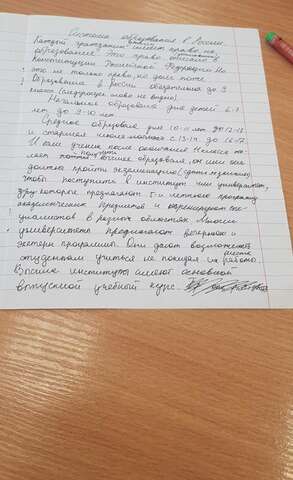 Система образования в России.
Каждый гражданин имеет право на
образование. Это право описано в
Конституции Российской Федерации. Но
это не только право, но долг тоже.
Образование в России обязательно до 9
класса (следующее слово не видно).
Начальное образование для детей 6-7
лет до 9-10 лет
Среднее образование для 10-11 лет до 12-13
и старшая школа молодых с 13-14 до 16-17
И если ученик после окончания 11 класса же-
лает получить высшее образование, он или она
должна пройти экзамены (сдать экзамены),
чтоб поступить в институт или университет,
которые предлагают 5-и летнюю программу
академических предметов и
циалистов в разных областях. Многие
университеты предлагают вечернюю и
экстерн программы. Они дают возможность
студентам учиться не покидая их места работы.
Высшие институты имеют основной
выпускной учебный курс.